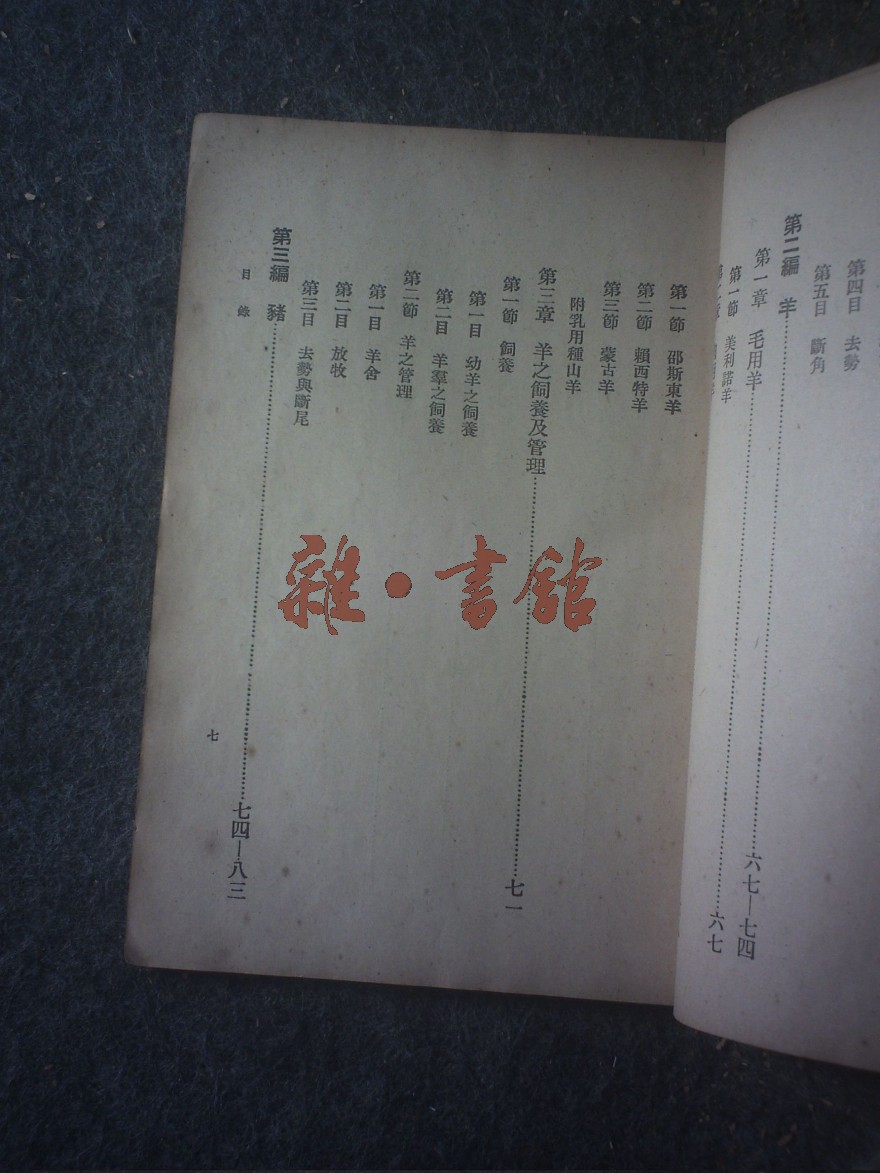 第四目　去勢
第五目　斷角
第二編　羊……六七—七四
第一章　毛用羊……六七
第一節　美利諾羊
第一節　邵斯東羊
第二節　賴西特羊
第三節　蒙古羊
附乳用種山羊
第三章　羊之飼養及管理……七一
第一節　飼養
第一目　幼羊之飼養
第二目　羊羣之飼養
第二節　羊之管理
第一目　羊舍
第二目　放牧
第三目　去勢與斷尾
第三編　豬……七四—八三
目錄
七
雜·書館